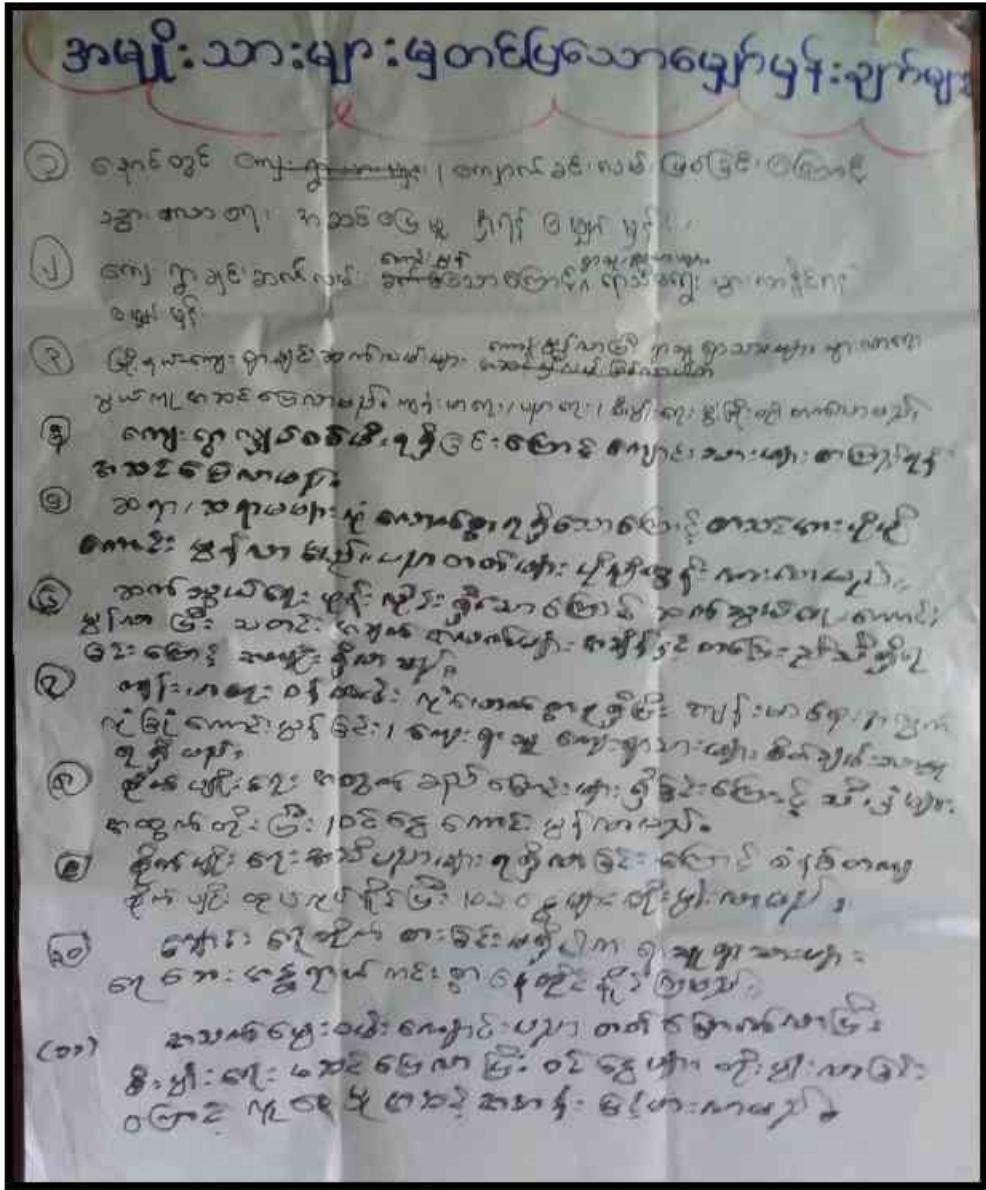 အမျိုးသားများမှတင်ပြသောမျှော်မှန်းချက်များ
၁ နောင်တွင် ကျေးရွာ လမ်း ဖြစ်ခြင်း ကြောင့်
သွားလာရေး အဆင်ပြေမှု ရှိရန် မျှော်မှန်း
၂ ကျေးရွာချင်းဆက်လမ်း ကောင်းမွန်သောကြောင့် ရွာသူရွာသားများ သွားလာနိုင်ရန်
မျှော်မှန်း
၃ မြို့နယ်ကျေးရွာချင်းဆက်လမ်းများ ကောင်းမွန်လာပြီး ရွာသူရွာသားများ သွားလာရေး
လွယ်ကူအဆင်ပြေလာမည်။ ကျန်းမာရေး၊ ပညာရေး၊ စီးပွားရေး ဖွံ့ဖြိုးတိုးတက်လာမည်။
၄ ကျေးရွာလျှပ်စစ်မီးရရှိခြင်းကြောင့် ကျောင်းသားများ စာကြည့်ရန်
အဆင်ပြေလာမည်။
၅ ဆရာ၊ ဆရာမများ လုံလောက်စွာရရှိသောကြောင့် စာသင်ကြားမှုပိုမို
ကောင်းမွန်လာမည်။ ပညာတတ်များ ပိုမိုထွန်းကားလာမည်။
၆ ဆက်သွယ်ရေး ဖုန်းလိုင်း ရှိသောကြောင့် ဆက်သွယ်မှု ကောင်း
မွန်လာပြီး သတင်း အချက်အလက်များ အချိန်နှင့်တပြေးညီသိရှိရ
ခြင်းကြောင့် ရှိလာမည်။
၇ ကျန်းမာရေး ဝန်ထမ်း လုံလောက်စွာရရှိပြီး ကျန်းမာရေးအတွက်
လုံခြုံကောင်းမွန်ခြင်း၊ ကျေးရွာသူ ကျေးရွာသားများ စိတ်ချမ်းသာမှု
ရရှိမည်။
၈ စိုက်ပျိုးရေးအတွက် ဆည်မြောင်းများရှိခြင်းကြောင့် သီးနှံများ
အထွက်တိုးပြီး ဝင်ငွေကောင်းမွန်လာမည်။
၉ စိုက်ပျိုးရေးအသိပညာများရရှိလာခြင်းကြောင့် စံနစ်တကျ
စိုက်ပျိုး ထုတ်လုပ်နိုင်ပြီး ဝင်ငွေများတိုးပွားလာမည်။
၁၀ ချောင်းရေတိုက်စားခြင်းမရှိပါက ရွာသူရွာသားများ
ရေဘေးအန္တရာယ်ကင်းစွာ နေထိုင်နိုင်ကြမည်။
(၁၁) အသက်မွေးဝမ်းကျောင်းပညာ တတ်မြောက်လာပြီး
စီးပွားရေး အဆင်ပြေလာပြီး ဝင်ငွေများ တိုးပွားလာခြင်း
ကြောင့် လူနေမှုအဆင့်အတန်း မြင့်မားလာမည်။